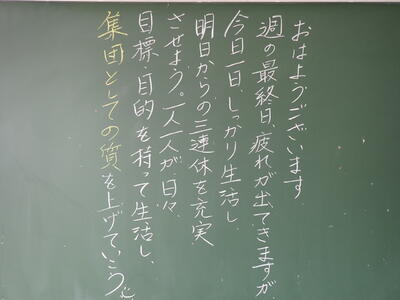 おはようございます
週の最終日、疲れが出てきますが、
今日一日、しっかり生活し
明日からの三連休を充実
させよう。一人一人が、日々、
目標・目的を持って生活し、
集団としての質を上げていこう。